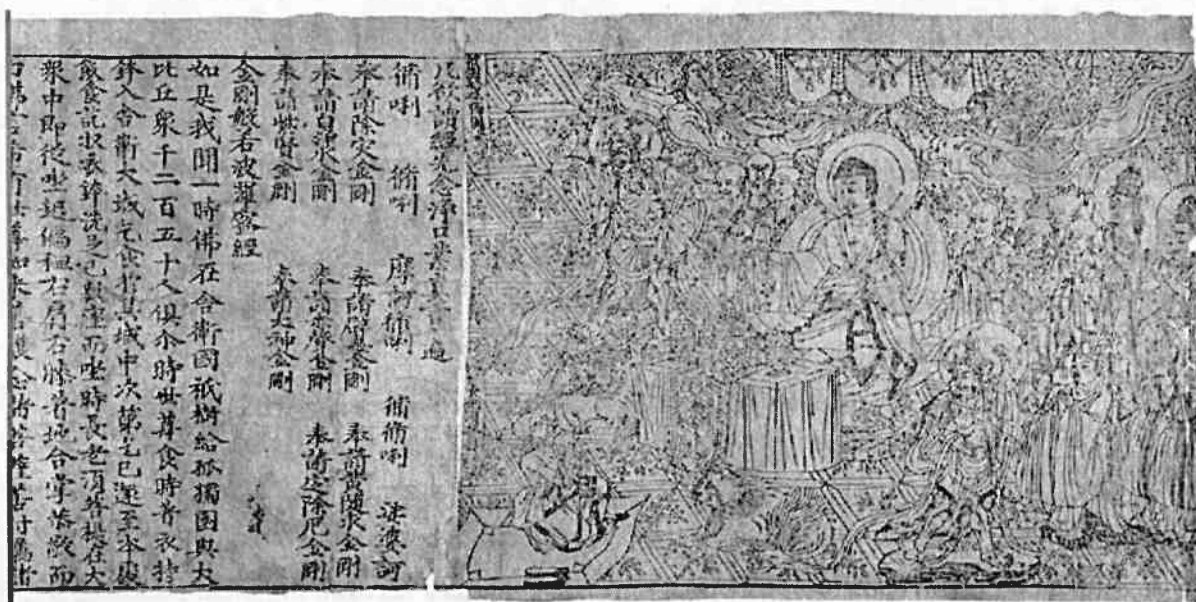 凡欲讀經先念淨口業真言一遍
脩唎　脩唎　摩訶脩唎　脩脩唎　娑婆訶
奉請除灾金剛　奉請辟毒金剛　奉請黃隨求金剛
奉請白淨水金剛　奉請赤聲金剛　奉請定除厄金剛
奉請紫賢金剛　奉請大神金剛
金剛般若波羅蜜經
如是我聞一時佛在舍衛國祇樹給孤獨園與大
比丘衆千二百五十人俱尒時世尊食時著衣持
鉢入舍衛大城乞食於其城中次第乞已還至本處
飯食訖收衣鉢洗足已敷座而坐時長老須菩提在大
衆中即從坐起偏袒右肩右膝著地合掌恭敬而
白佛言希有世尊如來善護念諸菩薩善付囑諸